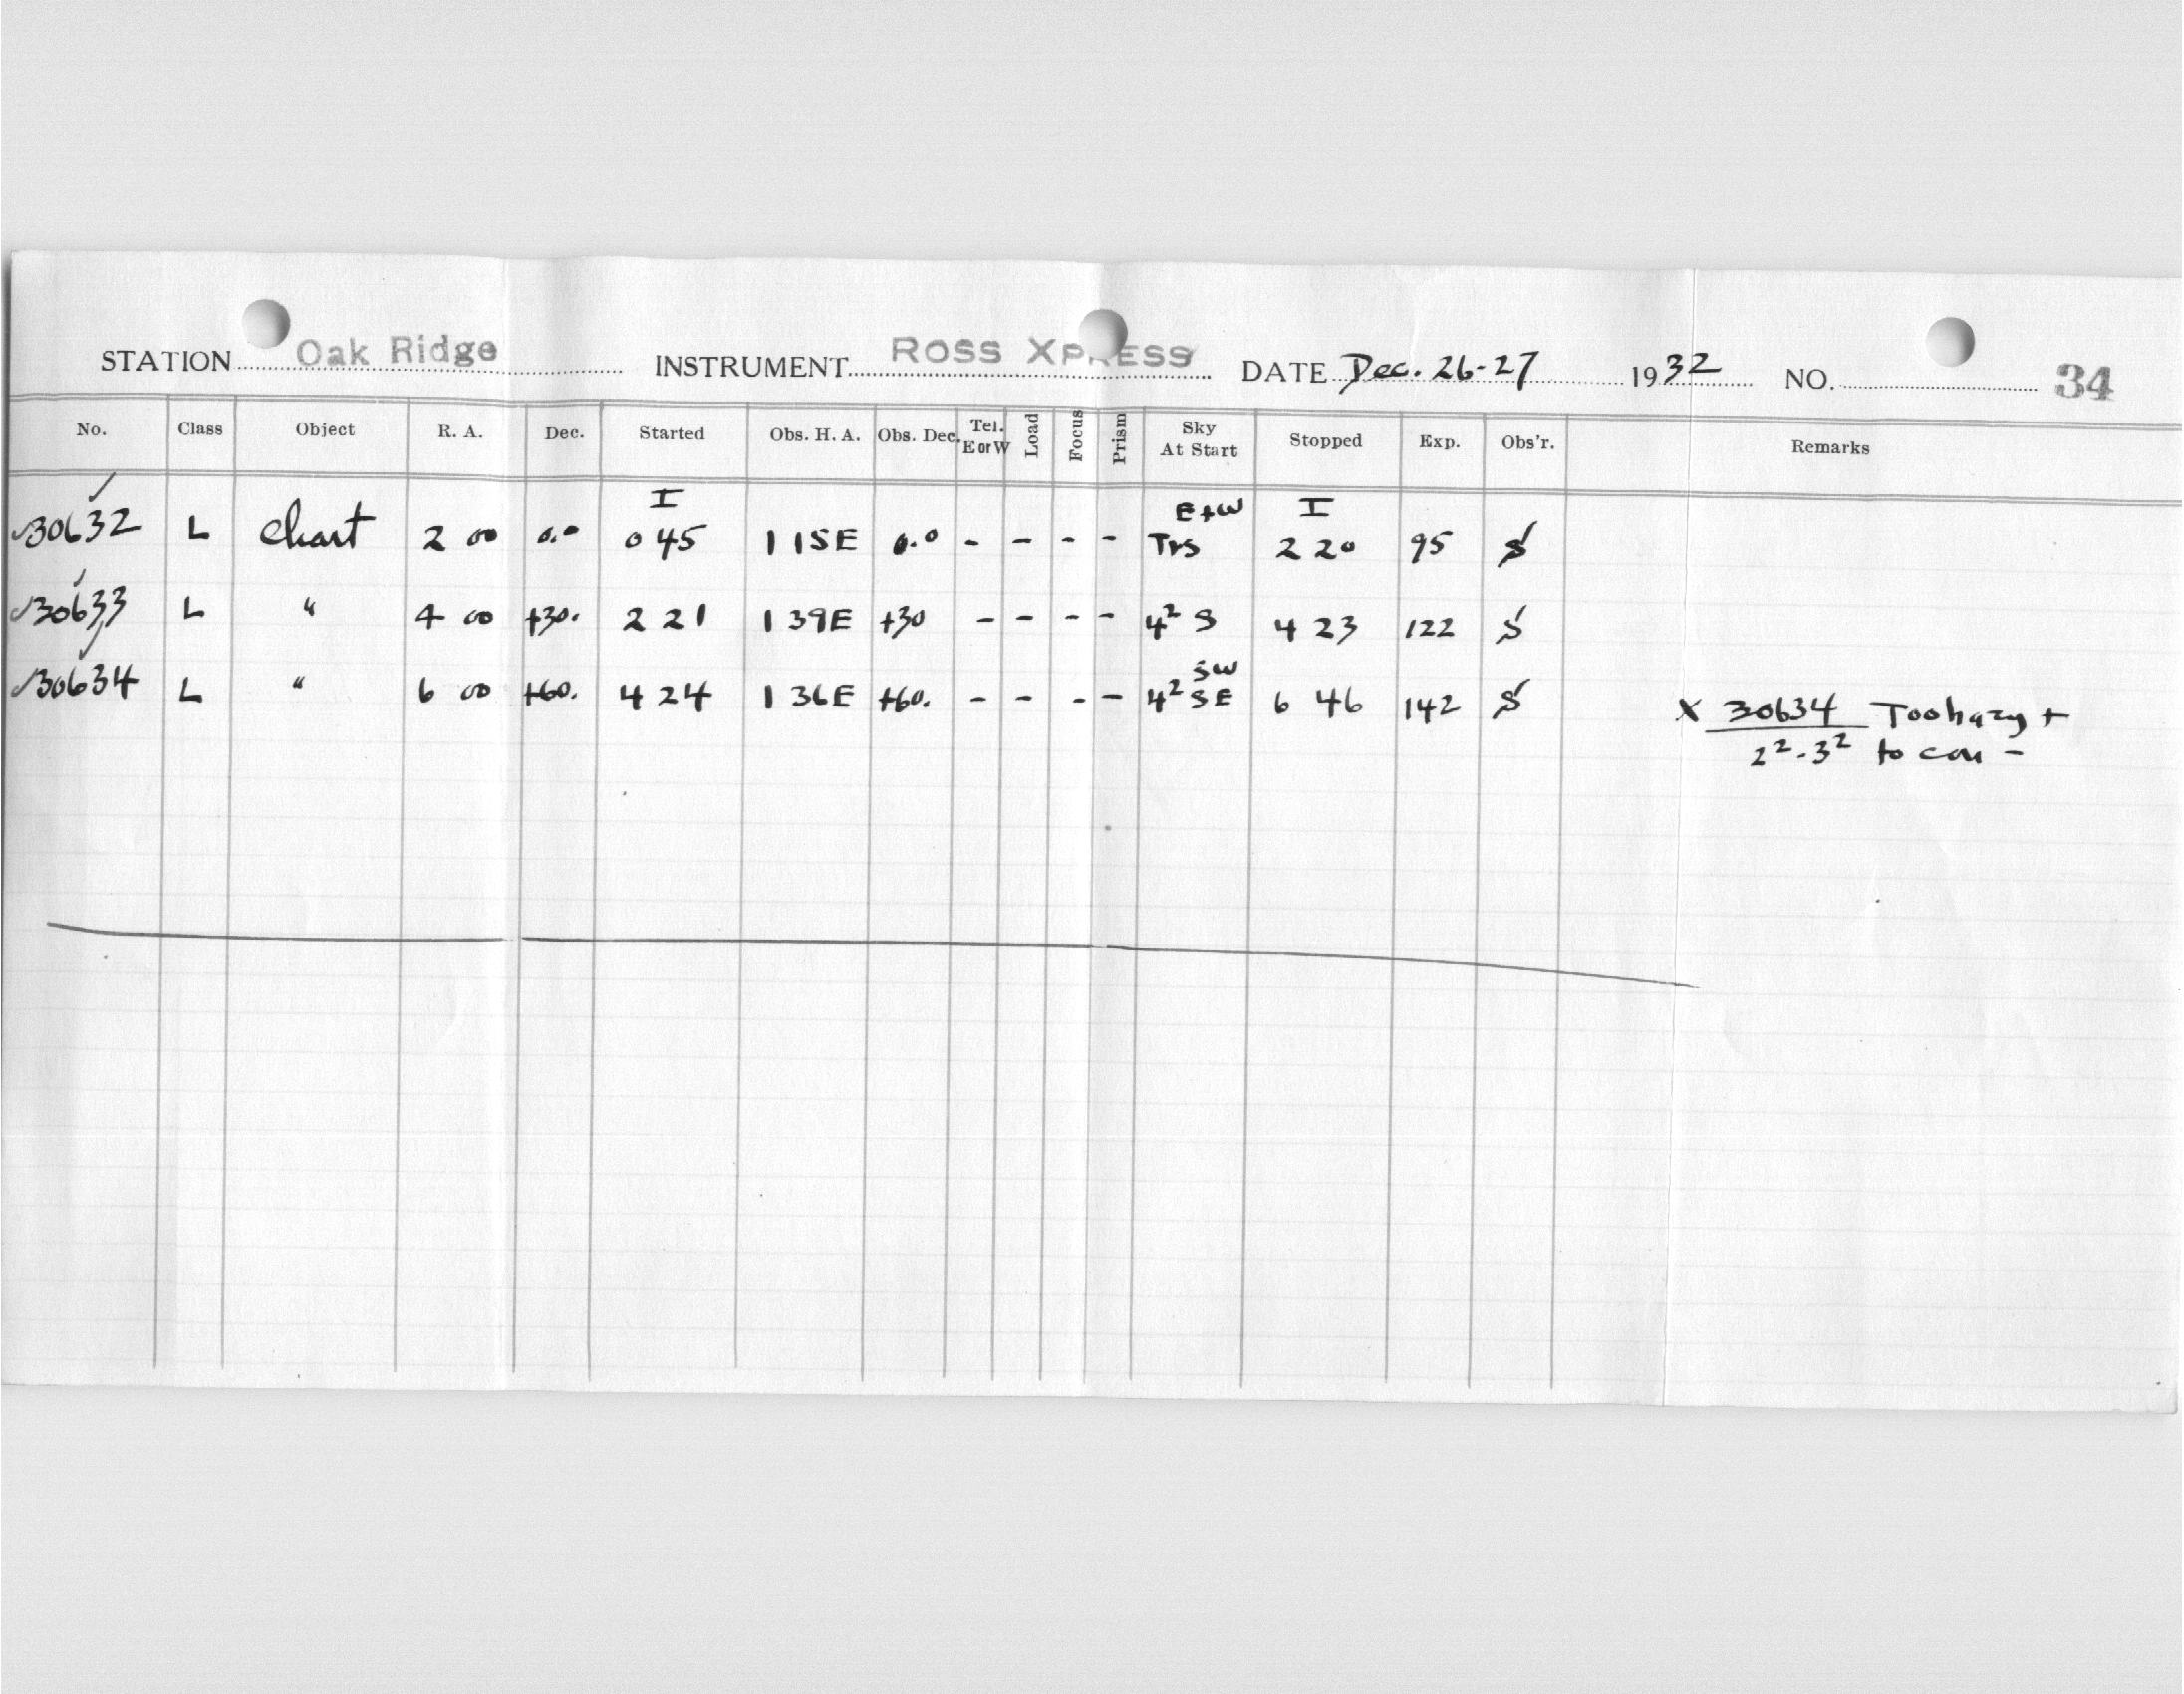 STATION Oak Ridge INSTRUMENT ROSS XPRESS DATE Dec. 26-27 1932 NO. 34
No. Class Object R. A. Dec. Started Obs. H. A. Obs. Dec. Tel. E or W Load Focus Prism Sky At Start Stopped Exp. Obs'r. Remarks
I E+W I
✓30632 L Chart 2 00 0.0 0 45 1 15E 0.0 - - - - Trs 2 20 95 S
✓30633 L " 4 00 +30. 2 21 1 39E +30 - - - - 4² S 4 23 122 S
SW
✓30634 L " 6 00 +60. 4 24 1 36E +60. - - - - 4² SE 6 46 142 S
X 30634 Too hazy +
2²-3² to con -